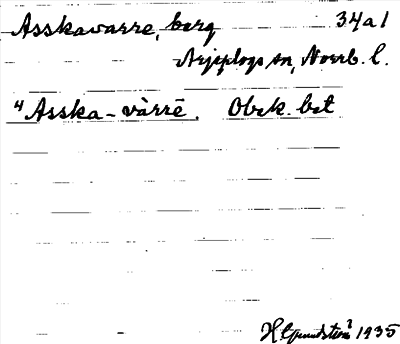 Asskavarre, berg 34a1
Arjeplogs sn, Norrb. l.
⁴Asska-vàrrē. Obek. bet
H. Grundström 1935